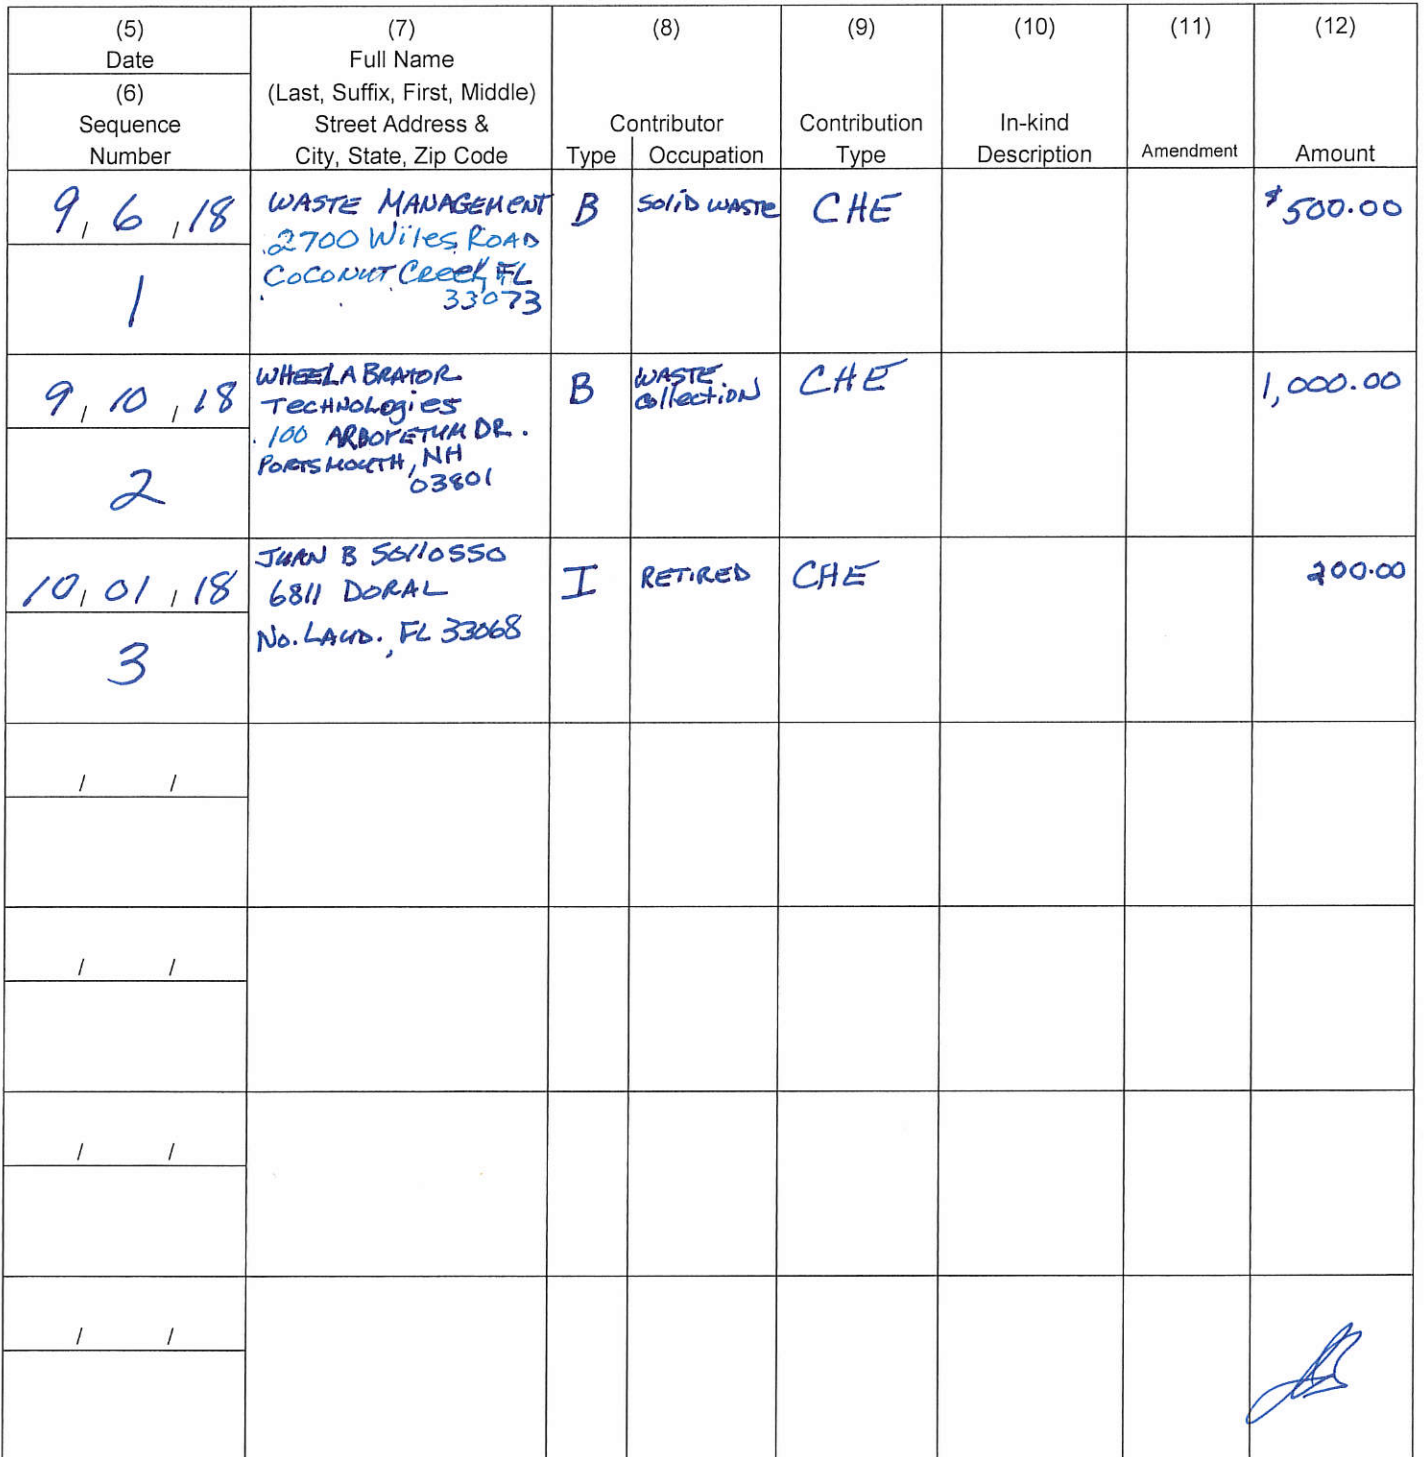 (5)
Date
(6)
Sequence
Number
(7)
Full Name
(Last, Suffix, First, Middle)
Street Address &
City, State, Zip Code
(8)
Contributor
Type Occupation
(9)
Contribution
Type
(10)
In-kind
Description
(11)
Amendment
(12)
Amount
9 / 6 / 18
1
WASTE MANAGEMENT
2700 Wiles ROAD
COCONUT Creek, FL
33073
B
Solid WASTE
CHE
$500.00
9 / 10 / 18
2
WHEELABRATOR
TecHNOLOgies
100 ARBOrETUM DR.
PORTSMOUTH, NH
03801
B
WASTE
collection
CHE
1,000.00
10 / 01 / 18
3
JUAN B
6811 DORAL
No. LAUD., FL 33068
I
RETIRED
CHE
200.00
/ /
/ /
/ /
/ /